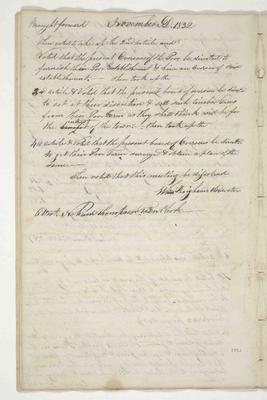 Brought forward November 2d. 1832
Then voted to take up the 2nd article and
Voted that the present Overseers of the Poor be directed to
furnish their Poor Establishment &
establishment. Then took up the
3d article & Voted that the present board of overseers be directed
to act at their discretion & sell such timber
from their Poor farm as they shall think will be for
the interest of the town. Then took up the
4th article & Voted that the present board of Overseers be directed
to get their Poor Farm surveyed & obtain a plan of the
same
Then voted that this meeting be dissolved
Wm Bigham Moderator
Attest. A. Thompson Town Clerk